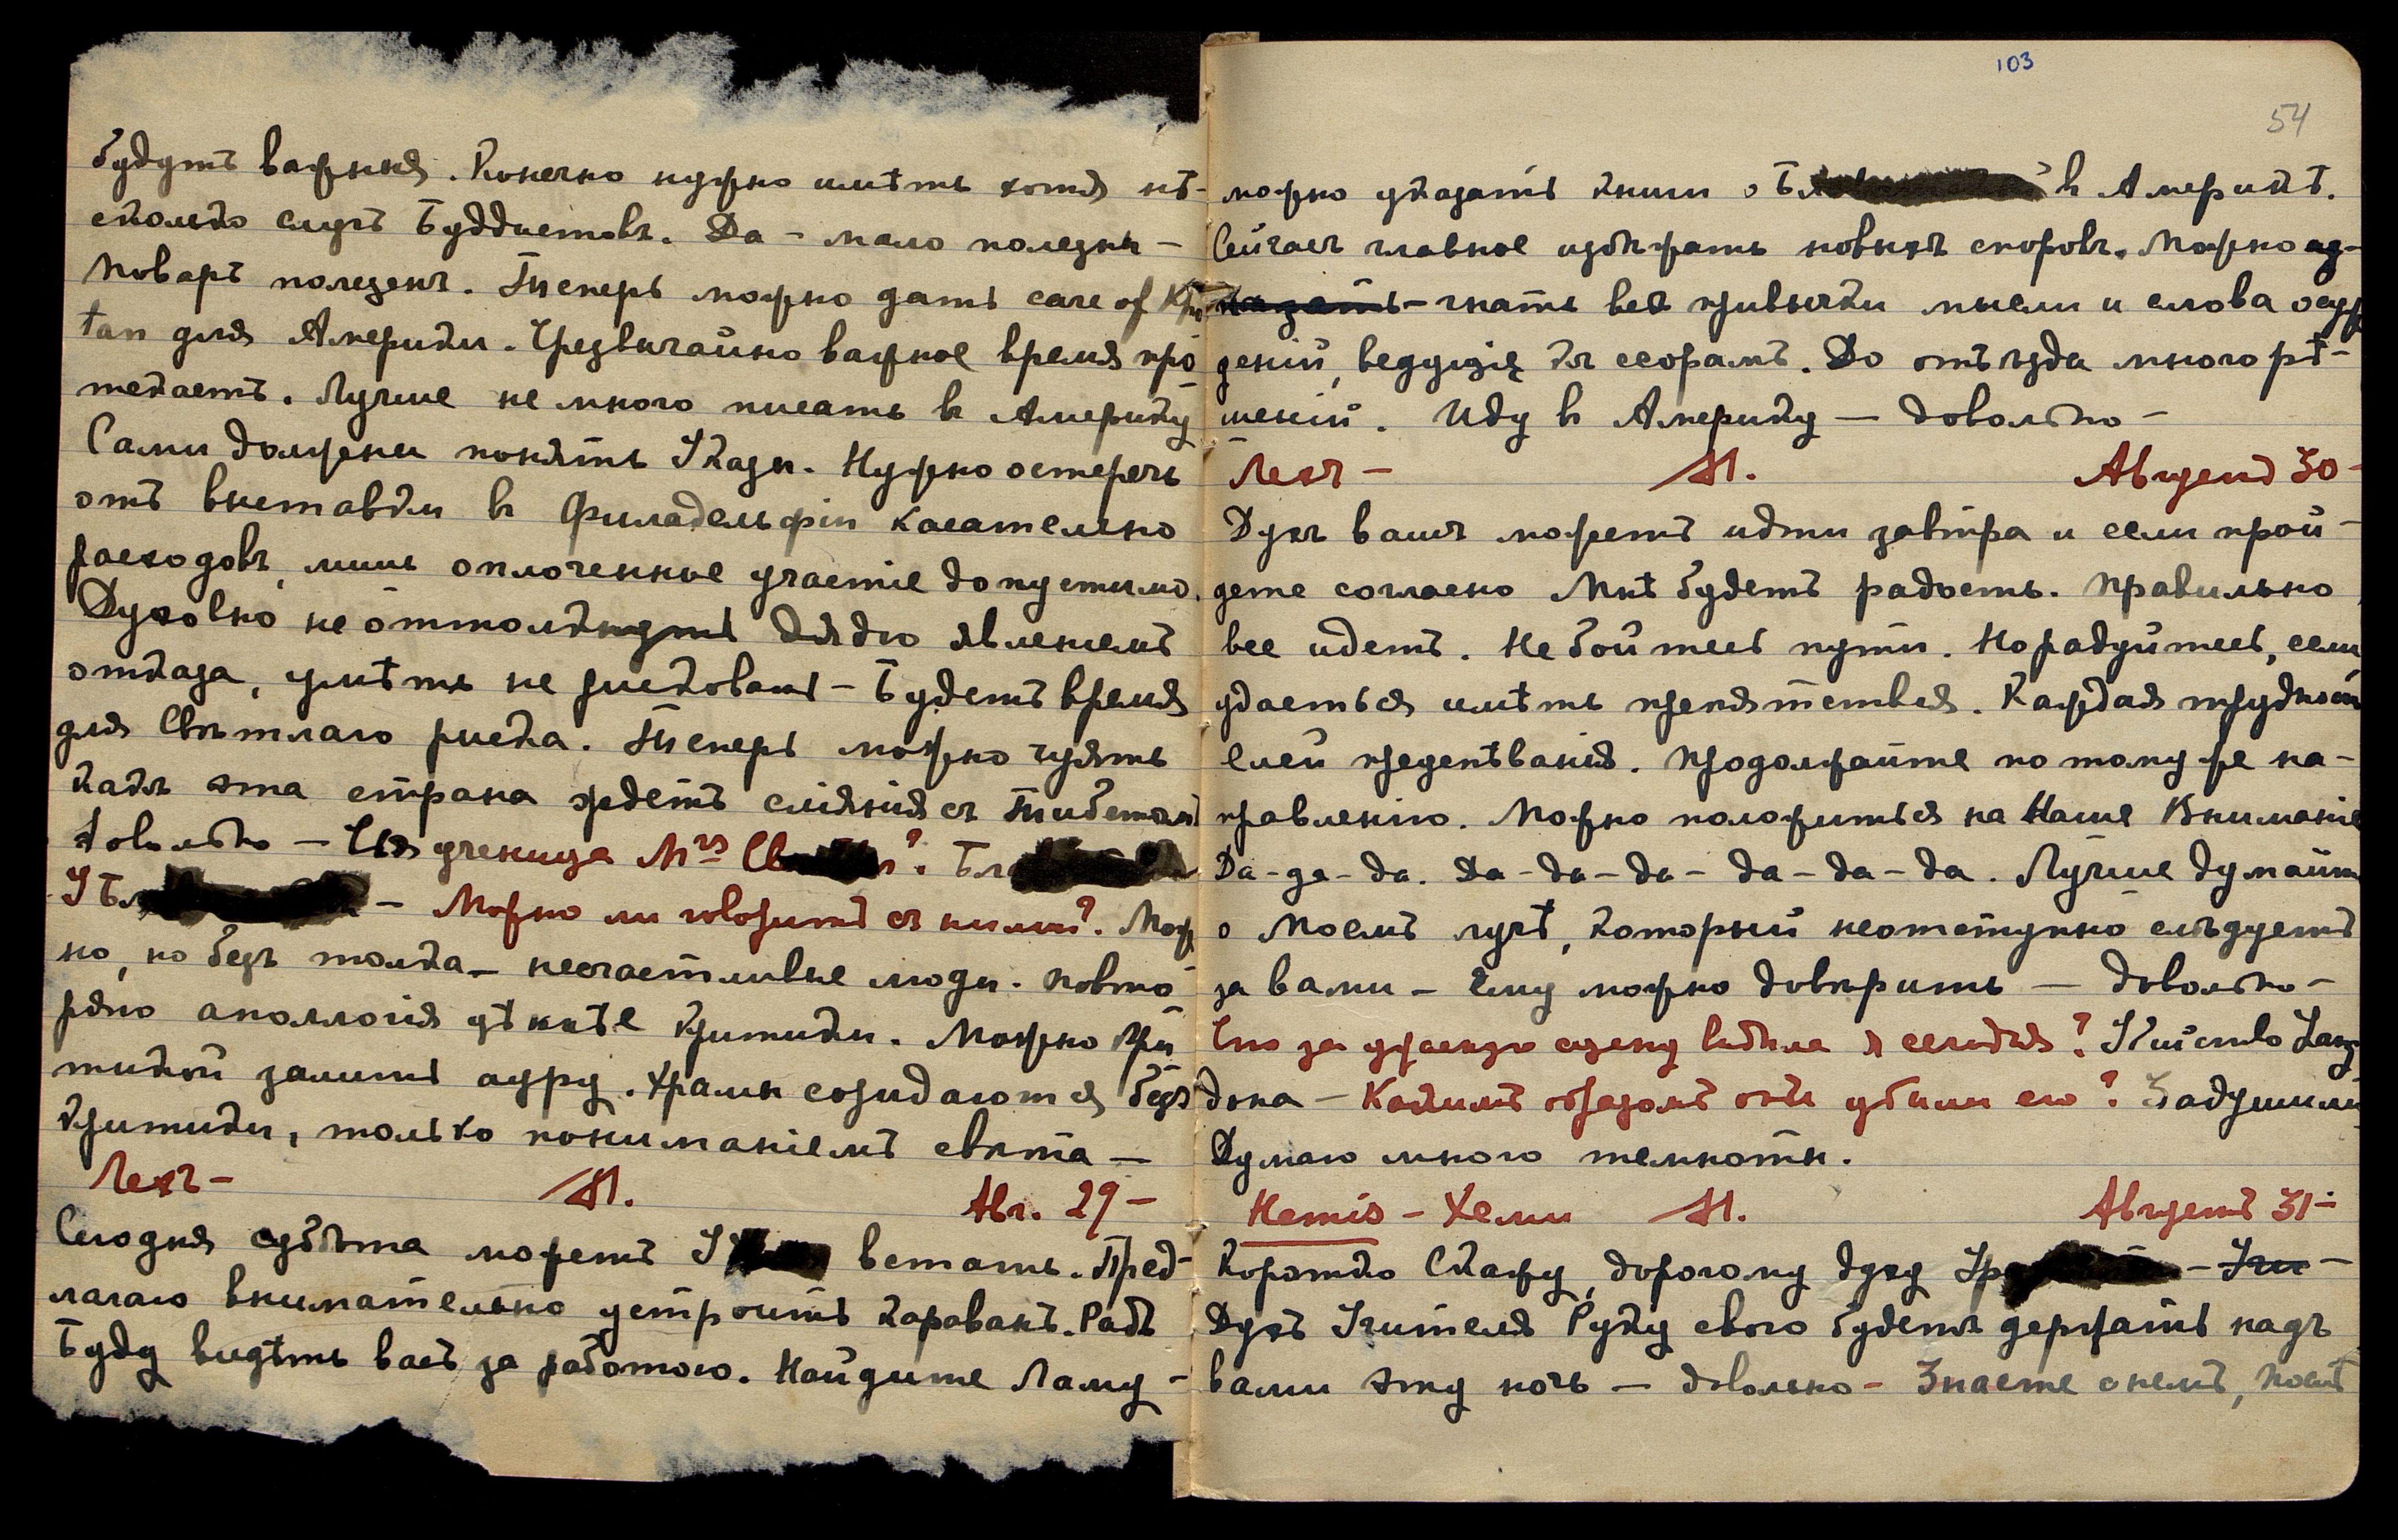 будутъ важныя. Конечно нужно имѣть хотя нѣ-
сколько слугъ Буддистовъ. Да – мало полезны –
Поваръ полезенъ. Теперь можно дать care of
tan для Америки. Чрезвычайно важное время про
текаетъ. Лучше не много писать в Америку
Сами должны понять Указъ. Нужно остеречь
отъ выставки в Филадельфіи касательно
расходовъ, лишь оплоченное участіе допустимо.
Духовно не оттолкнуть дядю явленіемъ
отказа, умѣть не рисковать – Будетъ время
для Свѣтлаго риска. Теперь можно чуять
какъ эта страна ждетъ сліянія съ Тибетомъ
Довольно – Чья ученица Mrs Св ? Бл
У Бл – Можно ли говорить съ ними? Мож
но, но безъ толка – несчастливые люди. Повто
ряю апологія цѣннѣе критики. Можно кри
тикой залить ауру. Храмы созидаются безъ
критики, только пониманіемъ свѣта –
Лехъ – М. Авг. 29 –
Сегодня суббота можетъ У встать. Пред-
лагаю внимательно устроить караванъ. Радъ
Буду видѣть васъ за работою. Найдите Ламу –
103
54
можно указать книги о Бл в Америкѣ.
Сейчасъ главное избѣжать новыхъ споровъ. Можно из-
гнать всѣ привычки мысли и слова осуж
деній, ведущія къ ссорамъ. До отъѣзда много рѣ-
шеній. Иду в Америку – довольно –
Лехъ – М. Августъ 30 –
Духъ вашъ можетъ идти завтра и если прой-
дете согласно Мнѣ будетъ радость. Правильно
все идетъ. Не бойтесь пути. Но радуйтесь, если
удасться имѣть препятствія. Каждая трудность
елей предепѣванія. Продолжайте по тому же на-
правленію. Можно положиться на Наше Вниманіе
Да-да-да. Да-да-да – да-да-да. Лучше думайте
о Моемъ лучѣ, который неотступно слѣдуетъ
за вами – Ему можно довѣрить – довольно –
Что за ужасную сцену видѣла я сегодня? Убійство Ланг
дона – Какимъ образомъ они убили его? Задушили
Думаю много темноты.
Hemis – Хеми М. Августъ 31 –
Коротко Скажу, дорогому духу Ур –
Духъ Учителя Руку свою будетъ держать надъ
вами эту ночь – довольно – Знаете о немъ,